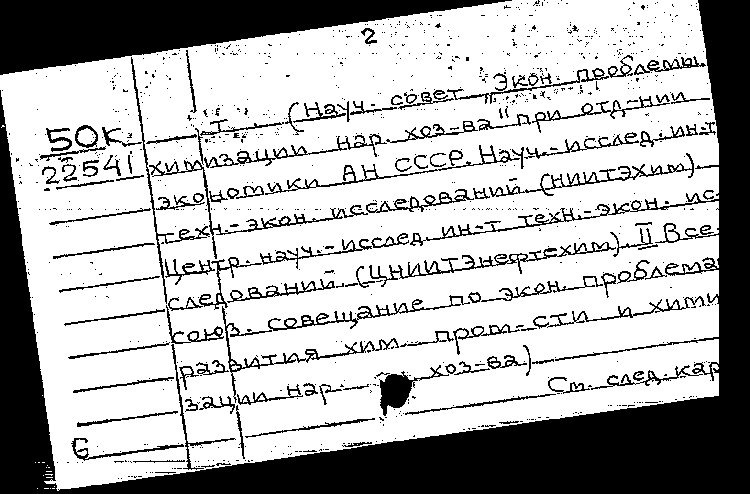 2
50к
22541
т. (Науч. совет "Экон. проблемы
химизации нар. хоз-ва" при отд-нии
экономики АН СССР. Науч.-исслед. ин-т
техн.-экон. исследований (НИИТЭХим).
Центр. науч.-исслед. ин-т техн.-экон. ис-
следований. (ЦНИИТЭнефтехим). II Все-
союз. совещание по экон. проблема
развития хим. пром-сти и хими
зации нар. хоз-ва)
См. след. кар
6